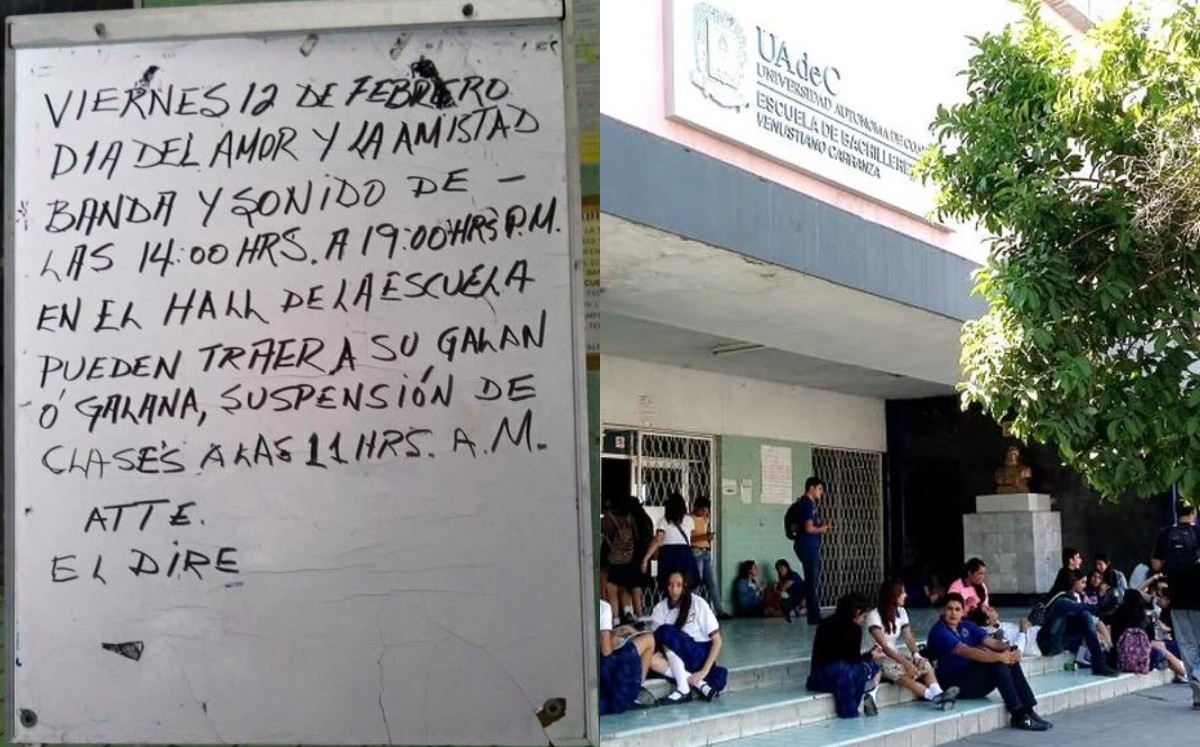 VIERNES 12 DE FEBRERO
DIA DEL AMOR Y LA AMISTAD
BANDA Y SONIDO DE –
LAS 14:00 HRS. A 19:00 HRS P.M.
EN EL HALL DE LA ESCUELA
PUEDEN TRAER A SU GALAN
Ó GALANA, SUSPENSIÓN DE
CLASES A LAS 11 HRS. A.M.
ATTE.
EL DIRE
UAdeC
UNIVERSIDAD AUTONOMA DE
ESCUELA DE BACHILLERE
VENUSTIANO CARRANZA